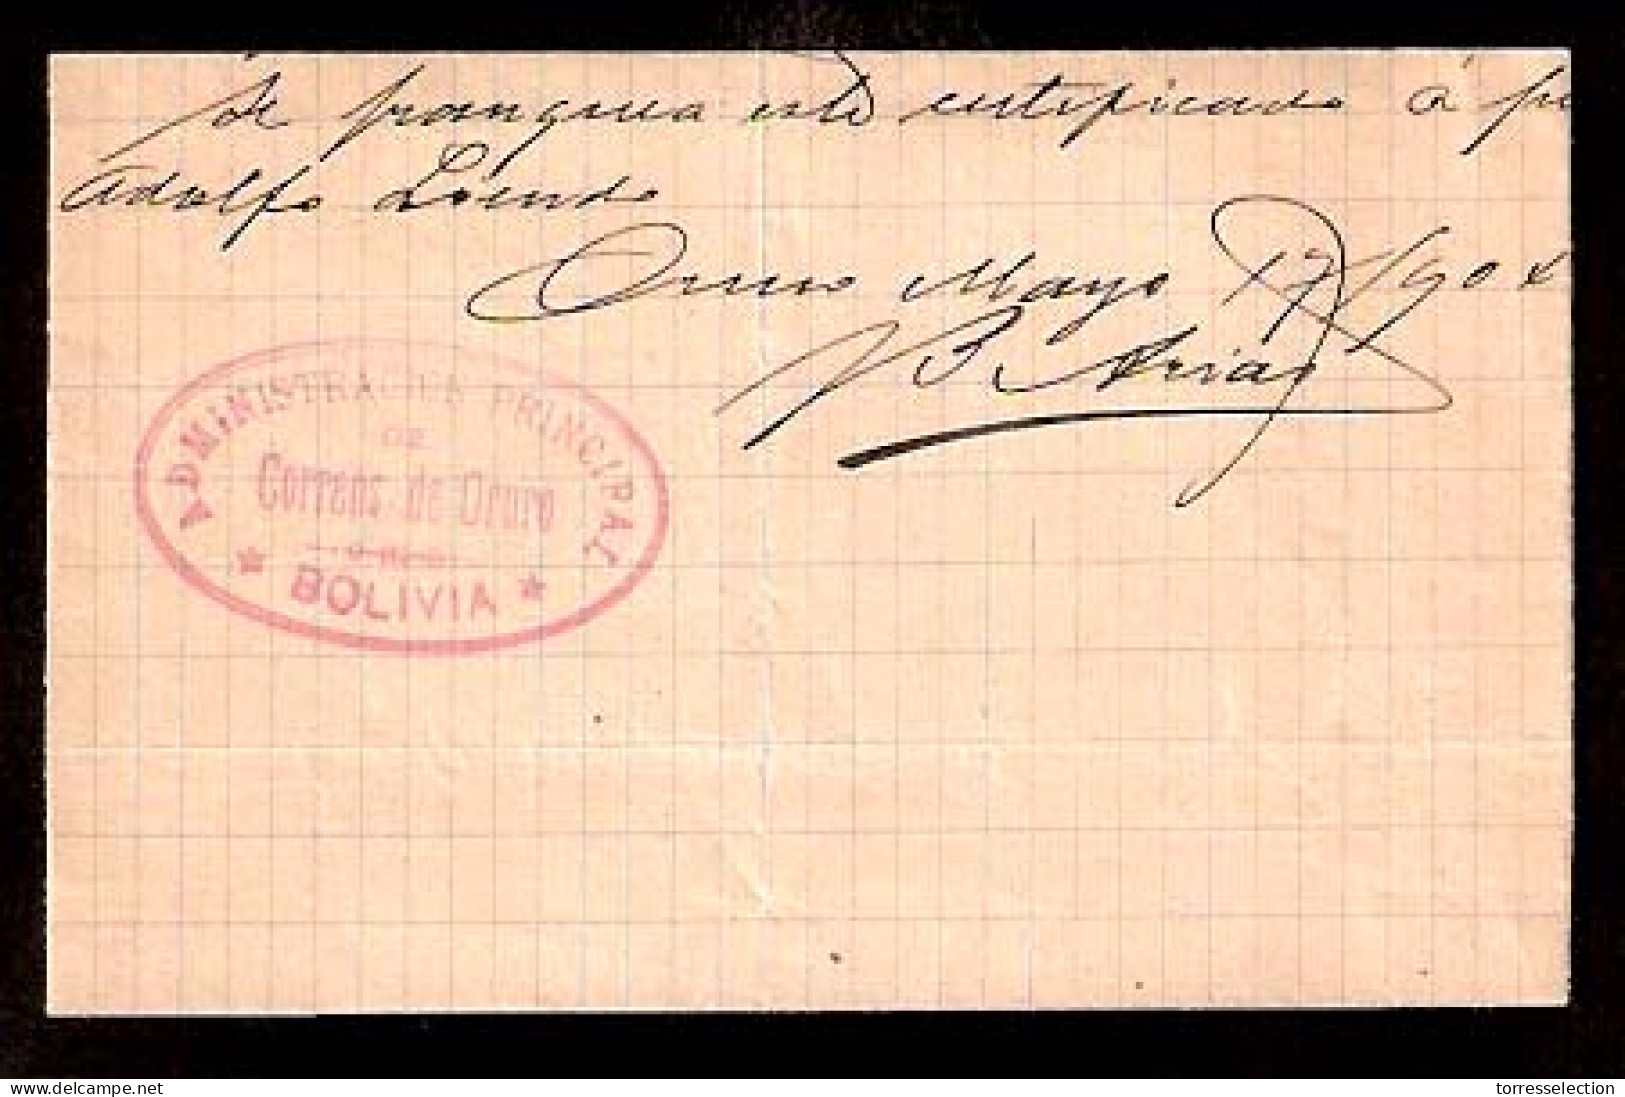 Se franquea este certificado á
Adolfo Loendo
Oruro Mayo 17/1904
Arias
ADMINISTRACION PRINCIPAL
DE
Correos de Oruro
BOLIVIA
delcampe.net
torresselection